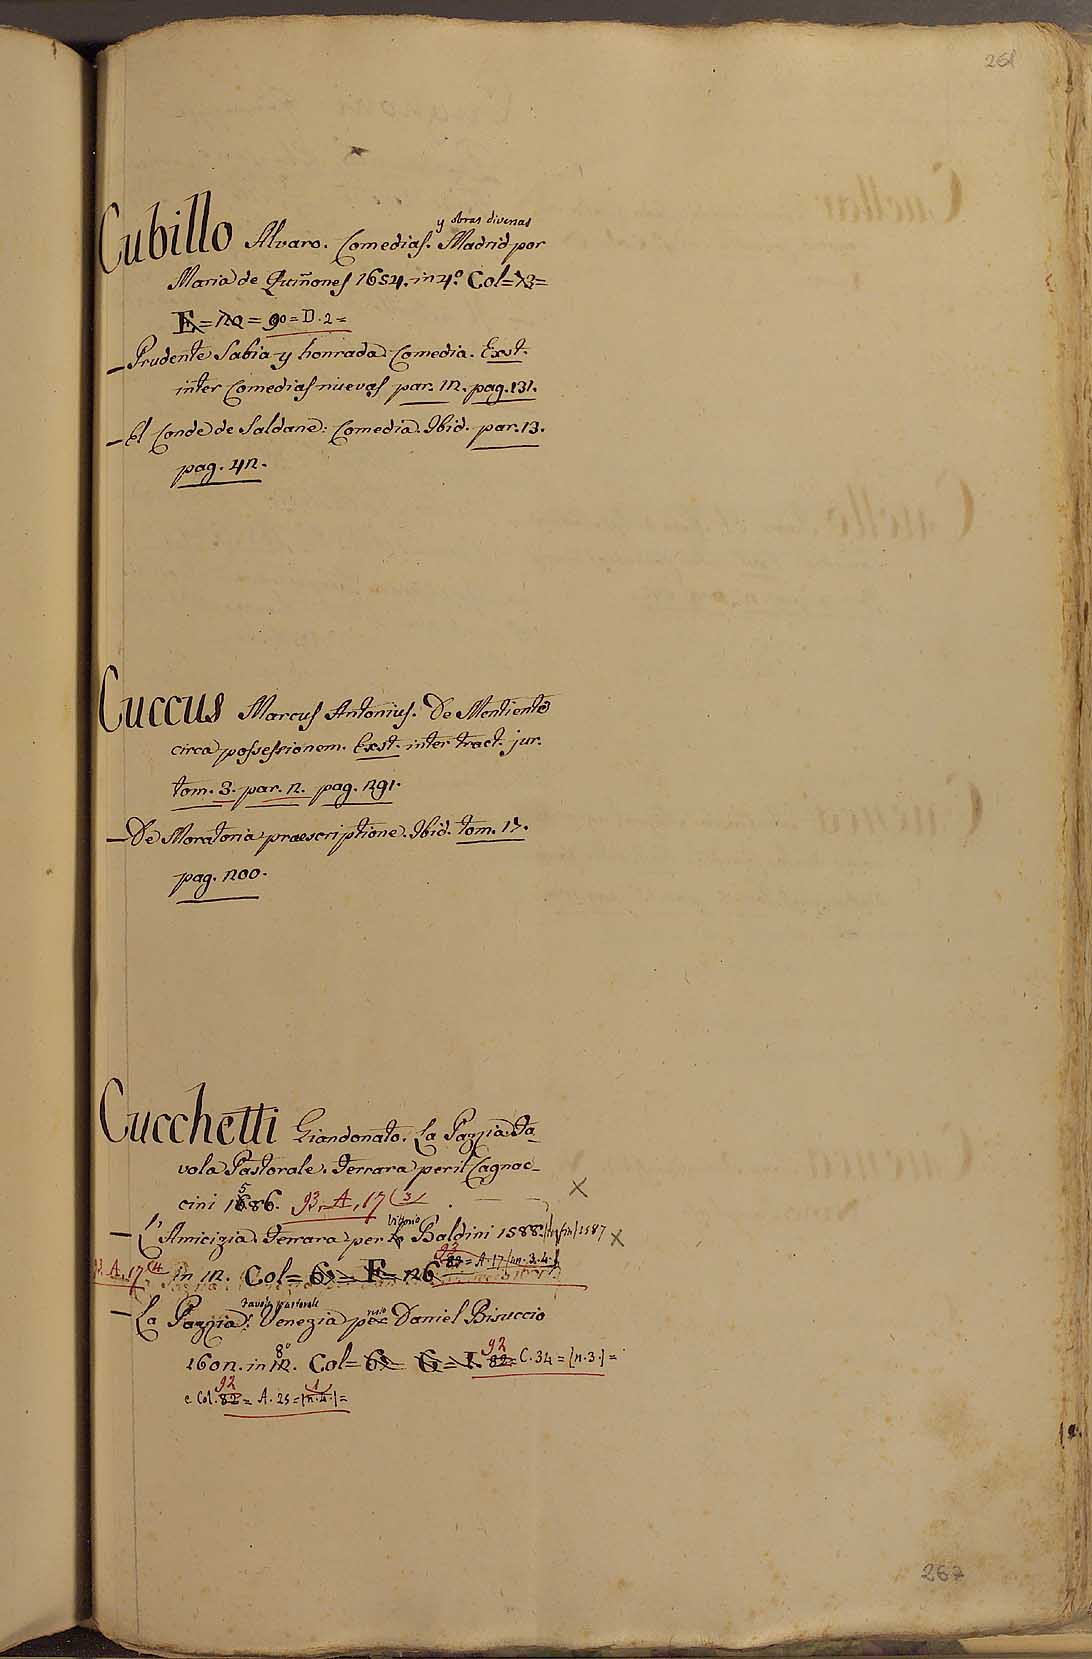 261
y obras diversas
Cubillo Alvaro. Comedias. Madrid por
Maria de Quiñones 1654. in 4.º Col=13=
E=120= 90=D.2=
—Prudente Sabia y honrada: Comedia. Exst.
inter Comedias nuevas par. 12. pag. 131.
—El Conde de Saldane: Comedia. Ibid. par. 13.
pag. 42.
Cuccus Marcus Antonius. De Mentiente
circa possessionem. Exst. inter tract. jur.
tom. 3. par. 2. pag. 291.
—De Moratoria praescriptione. Ibid. tom. 17.
pag. 200.
Cucchetti Giandonato. La Pazzia Fa-
vola Pastorale. Ferrara per il Cagnac-
cini 1586. 93. A. 17 (3)
—L'Amicizia. Ferrara per Vittorio Baldini 1588. 1587
93. A. 17 (4 in 12. Col= 6 = F= 26 92 82= A. 17 (nn. 3. 4.)
—La Pazzia: Favola pastorale Venezia per Daniel Bisuccio
1602. in 12. 8º Col= 6 = G= I. 92 82= C. 34 = (n. 3.) =
e Col. 92 82= A. 25 = 1 (n. 4.) =
267